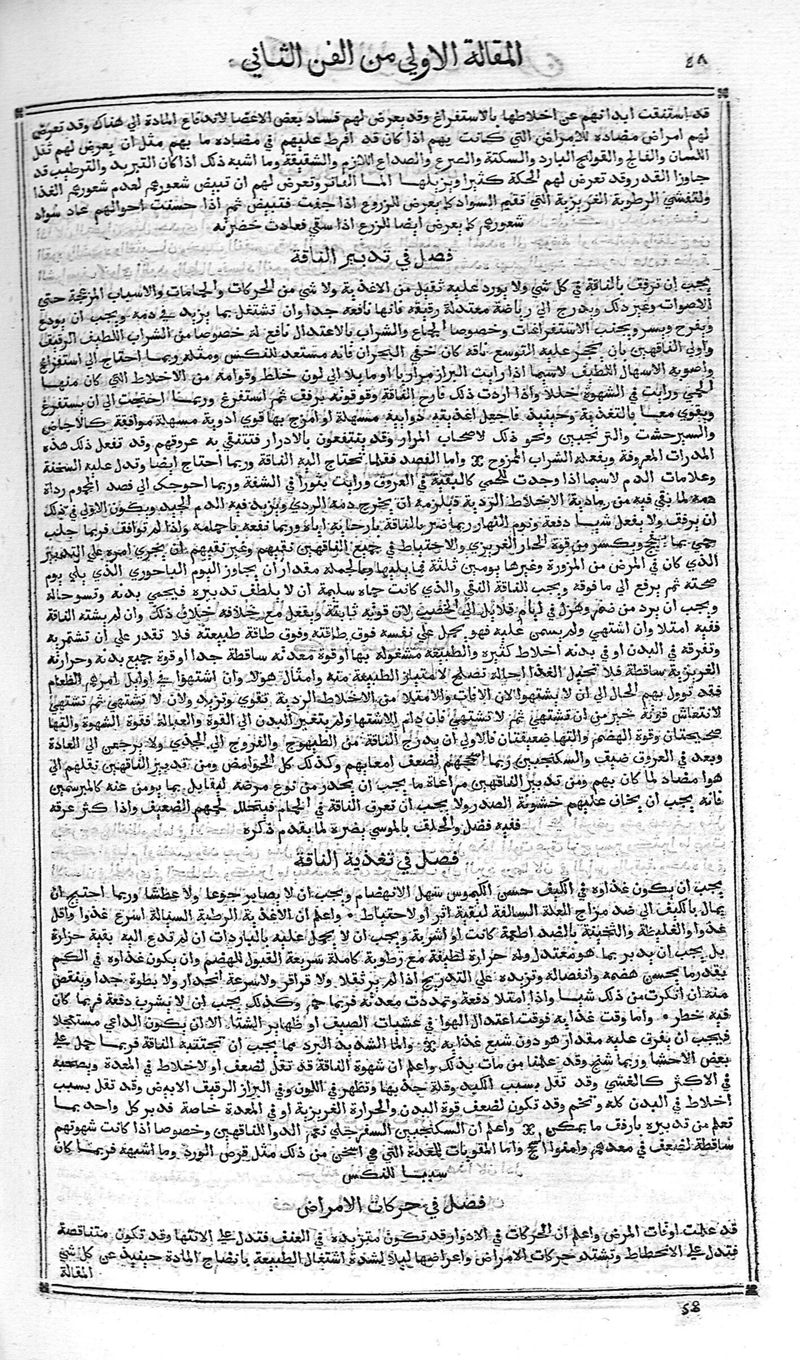 ٤٨
المقالة الاولي من الفن الثاني
قد استنقت ابدانهم عن اخلاطها بالاستفراغ وقد يعرض لهم فساد بعض الاعضا لاندفاع المادة الي هناك وقد تعرض
لهم امراض مضاده للامراض التي كانت بهم اذا كان قد افرط عليهم في مضاده ما بهم مثل ان يعرض لهم ثقل
اللسان والفالج والقولنج البارد والسكتة والصرع والصداع اللازم والشقيقة وما اشبه ذلك اذا كان التبريد والترطيب قد
جاوزا القدر وقد تعرض لهم الحكة كثيرا ويزيلها الما الفاتر وتعرض لهم ان تبيض شعورهم لعدم شعورهم الغذا
ولتفشي الرطوبة الغريزية التي تقيم السواد كما يعرض للزروع اذا جفت فتبيض ثم اذا حسنت احوالهم عاد سواد
شعورهم كما يعرض ايضا للزرع اذا سقي فعادت خضرته
فصل في تدبير الناقة
يجب ان ترفق بالناقة في كل شي ولا يورد عليه ثقيل من الاغذية ولا شي من الحركات والحمامات والاسباب المزعجة حتي
الاصوات وغير ذلك ويدرج الي رياضة معتدلة رقيقة فانها نافعة جدا وان تشتغل بما يزيد في دمه ويجب ان يودع
ويفرح ويسر ويجنب الاستفراغات وخصوصا الجماع والشراب بالاعتدال نافع له خصوصا من الشراب اللطيف الرقيق
واولي الناقهين بان يحجر عليه التوسع ناقه كان خفي البحران فانه مستعد للنكس ومثله ربما احتاج الي استفراغ
واصوبه الاسهال اللطيف لاسيما اذا رايت البراز مراريا او مايلا الي لون خلط وقوامه من الاخلاط التي كان منها
الحمي ورايت في الشهوة خللا واذا اردت ذلك فارح الناقة وقو قوته برفق ثم استفرغ وربما احتجت الي ان يستفرغ
ويقوي معا بالتغذية وحينيذ فاجعل اغذيته دوايية مسهلة او امزج بها قوي ادوية مسهلة موافقة كالاجاص
والشيرخشت والترنجبين ونحو ذلك لاصحاب المرار وقد ينتفعون بالادرار فتتنقي به عروقهم وقد تفعل ذلك هذه
المدرات المعروفة ويفعله الشراب الممزوج واما الفصد فقلما تحتاج اليه الناقة وربما احتاج ايضا وتدل عليه السحنة
وعلامات الدم لاسيما اذا وجدت للحمي كالبقية في العروق ورايت بثورا في الشفة وربما احوجك الي فصد المحموم رداة
همه لما بقي فيه من رمادية الاخلاط الردية فتلزمه ان يخرج دمه الردي ويزيد فيه الدم الجيد ويكون الاولي في ذلك
ان يرفق ولا يفعل شيا دفعة ونوم النهار ربما ضر بالناقة بارخايه اياه وربما نفعه باجمامه واذا لم توافق فربما جلب
حمي بما ينج ويكسر من قوة الحار الغريزي والاحتياط في جميع الناقهين نقيهم وغير نقيهم ان يجري امره علي التدبير
الذي كان في المرض من المزورة وغيرها يومين ثلثة فما يليها وبالجملة مقدار ان يجاوز اليوم الباحوري الذي يلي يوم
صحته ثم يرفع الي ما فوقه ويجب للناقة النقي والذي كانت حماه سليمة ان لا يلطف تدبيره فيحمي بدنه وتسو حاله
ويجب ان يرد من ضمر وهزل في ايام قلايل الي الخصب لان قوته ثابتة ويفعل مع خلافه خلاف ذلك وان لم يشته الناقة
ففيه امتلا وان اشتهي ولم يسمن عليه فهو يحمل علي نفسه فوق طاقته وفوق طاقة طبيعته فلا تقدر علي ان تشتمريه
وتفرقه في البدن او في بدنه اخلاط كثيره والطبيعة مشغولة بها او قوة معدته ساقطة جدا او قوة جميع بدنه وحرارته
الغريزية ساقطة فلا تحيل الغذا احالة تصلح لامتياز الطبيعة منه وامثال هولا وان اشتهوا في اوايل امرهم الطعام
فقد توول بهم الحال الي ان لا يشتهوا لان الافات والامتلا من الاخلاط الردية تقوي وتزيد ولان لا تشتهي ثم تشتهي
لانتعاش قوته خير من ان تشتهي ثم لا تشتهي فان دام الاشتها ولم يتغير البدن الي القوة والعبالة فقوة الشهوة والتها
صحيحتان وقوة الهضم والتها ضعيفتان فالاولي ان يدرج الناقة من الطيهوج والفروج الي الجدي ولا يرجعن الي العادة
وبعد في العروق ضيق والسكنجبين ربما اسحجهم لضعف امعايهم وكذلك كل الحوامض ومن تدبير الناقهين نقلهم الي
هوا مضاد لما كان بهم ومن تدبير الناقهين مراعاة ما يجب ان يحذر من نوع مرضه ليقابل بما يومن عنه كالمبرسمين
فانه يجب ان يخاف عليهم خشونة الصدر ولا يجب ان تعرق الناقة في الحمام فيتحلل لحمهم الضعيف واذا كثر عرقه
ففيه فضل والحلق بالموسي يضره لما يقدم ذكره
فصل في تغذية الناقة
يجب ان يكون غذاوه في الكيف حسن الكيموس سهل الانهضام ويجب ان لا يصابر جوعا ولا عطشا وربما احتيج ان
يمال بالكيف الي ضد مزاج العلة السالفة لبقية اثر او لاحتياط واعلم ان الاغذية الرطبة السيالة اسرع غذوا واقل
غذوا والغليظة والثخينة بالضد اطعمة كانت او اشربة ويجب ان لا يحمل عليه بالباردات ان لم تدع اليه بقية حرارة
بل يجب ان يدبر بما هو معتدل وله حرارة لطيفة مع رطوبة كاملة سريعة القبول للهضم وان يكون غذاوه في الكم
بقدر ما يحسن هضمه وانفصاله وتزيده علي التدريج اذا لم ير ثقلا ولا قراقر ولا سرعة انحدار ولا بطوه جدا وينقص
منه ان انكرت من ذلك شيا واذا امتلا دفعة وتمددت معدته فربما حم وكذلك يجب ان لا يشرب دفعة فربما كان
فيه خطر واما وقت غذايه فوقت اعتدال الهوا في عشيات الصيف او ظهاير الشتا الا ان يكون الداعي مستعجلا
فيجب ان يفرق عليه مقدار هو دون شبع غذايه والما الشديد البرد مما يجب ان تجتنبه الناقة فربما حمل علي
بعض الاحشا وربما شنج وقد علمنا من مات بذلك واعلم ان شهوة الناقة قد تقل لضعف او لاخلاط في المعدة ويصحبه
في الاكثر كالغشي وقد تقل بسبب الكبد وقلة جذبها وتظهر في اللون وفي البراز الرقيق الابيض وقد تقل بسبب
اخلاط في البدن كله وتخم وقد تكون لضعف قوة البدن والحرارة الغريزية او في المعدة خاصة فدبر كل واحد بما
تعلم من تدبيره بارفق ما يمكن واعلم ان السكنجبين السفرجلي نعم الدوا للناقهين وخصوصا اذا كانت شهوتهم
ساقطة لضعف في معدهم وامنوا السحج واما المقويات للمعدة التي هي اسخن من ذلك مثل قرص الورد وما اشبهه فربما كان
سببا للنكس
فصل في حركات الامراض
قد علمت اوقات المرض واعلم ان الحركات في الادوار قد تكون متزيده في العنف فتدل علي الانتها وقد تكون متناقصة
فتدل علي الانحطاط وتشتد حركات الامراض واعراضها ليلا لشدة اشتغال الطبيعة بانضاج المادة حينيذ عن كل شي
المقالة
58